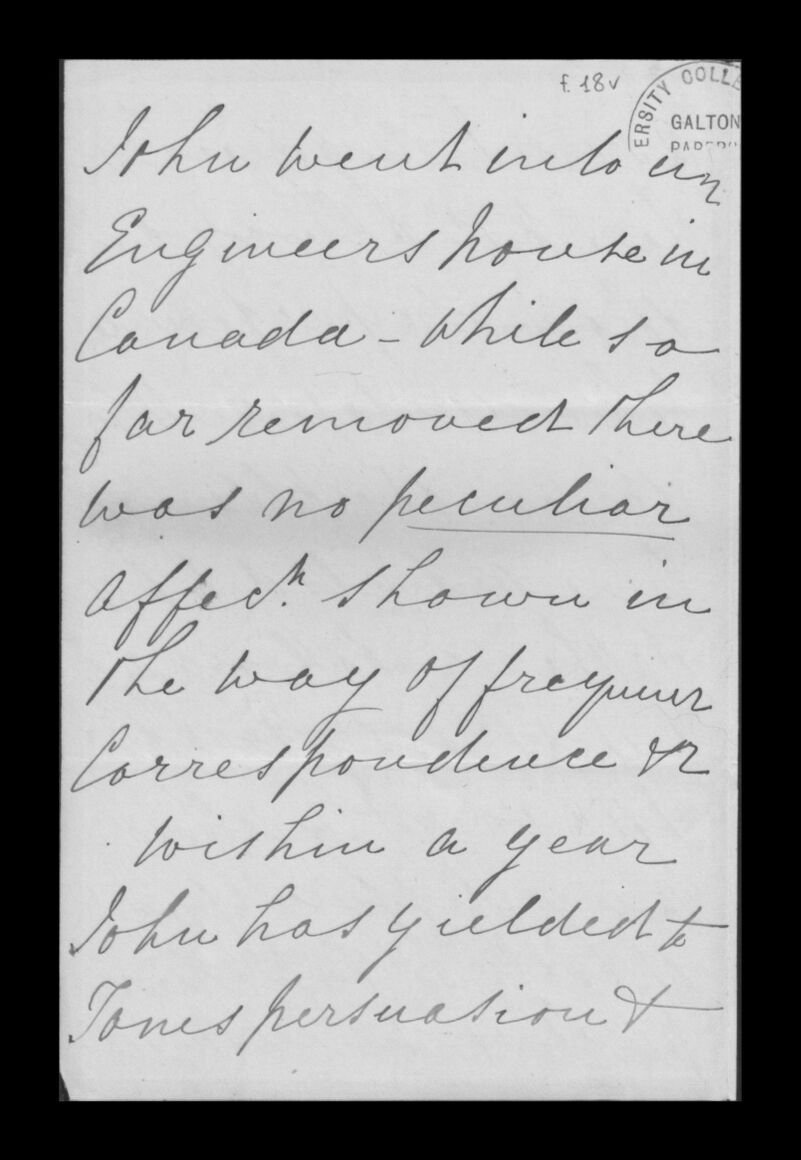 f. 18v
ERSITY COLLE
GALTON
PAPERS
John went into an
Engineers house in
Canada - While so
far removed there
was no peculiar
affectn. shown in
the way of frequent
Correspondence &c
within a year
John has yielded to
Toms persuasion &